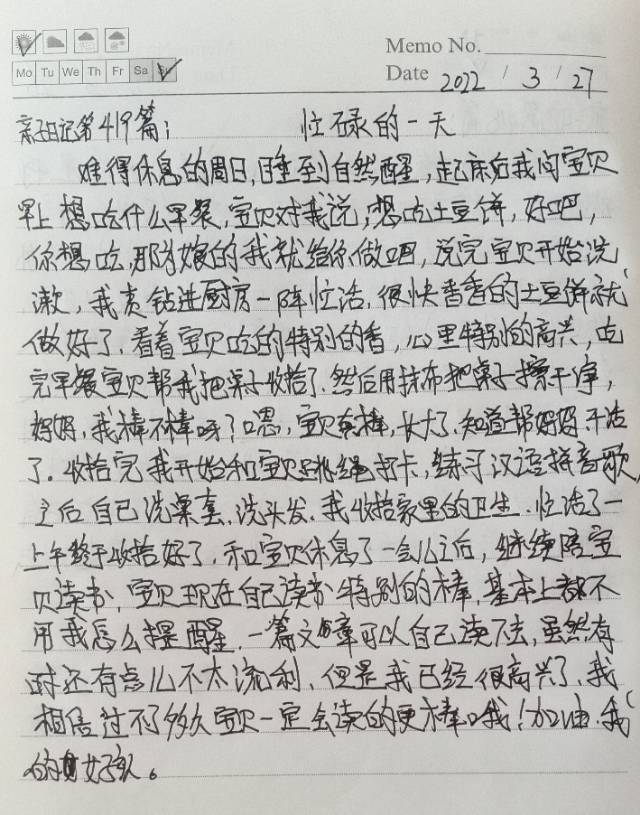 Memo No.
Mo Tu We Th Fr Sa Su
Date 2022 / 3 / 27
亲子日记第419篇： 忙碌的一天
难得休息的周日,睡到自然醒,起床后我问宝贝
早上想吃什么早餐,宝贝对我说,想吃土豆饼,好吧,
你想吃,那为娘的我就给你做吧,说完宝贝开始洗
漱,我责钻进厨房一阵忙活,很快香香的土豆饼就
做好了.看着宝贝吃的特别的香,心里特别的高兴,吃
完早餐宝贝帮我把桌子收拾了.然后用抹布把桌子擦干净,
妈妈,我棒不棒呀?嗯,宝贝真棒,长大了.知道帮妈妈干活
了.收拾完我开始和宝贝跳绳打卡,练习汉语拼音歌,
之后自己洗桌套.洗头发.我收拾家里的卫生.忙活了一
上午终于收拾好了.和宝贝休息了一会儿之后,继续陪宝
贝读书,宝贝现在自己读书特别的棒,基本上都不
用我怎么提醒.一篇文章可以自己读下去,虽然有
时还有点儿不太流利,但是我已经很高兴了.我
相信过不了多久宝贝一定会读的更棒哦!加油.我
的好女孩。